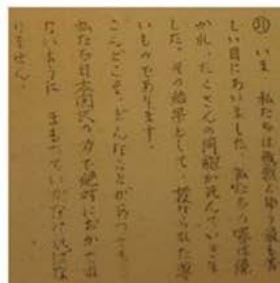 ㉛ いま、私たちは敗戦の中、最も苦
しい目にあいました。私たちの
かれ、たくさんの同胞が死んでいきま
した。その結果として、投げられた
いものであります。
こんどこそ、どんなことがあっても、
私たち日本国民の力で絶対におかされ
ないように、まもっていかなければな
りません。